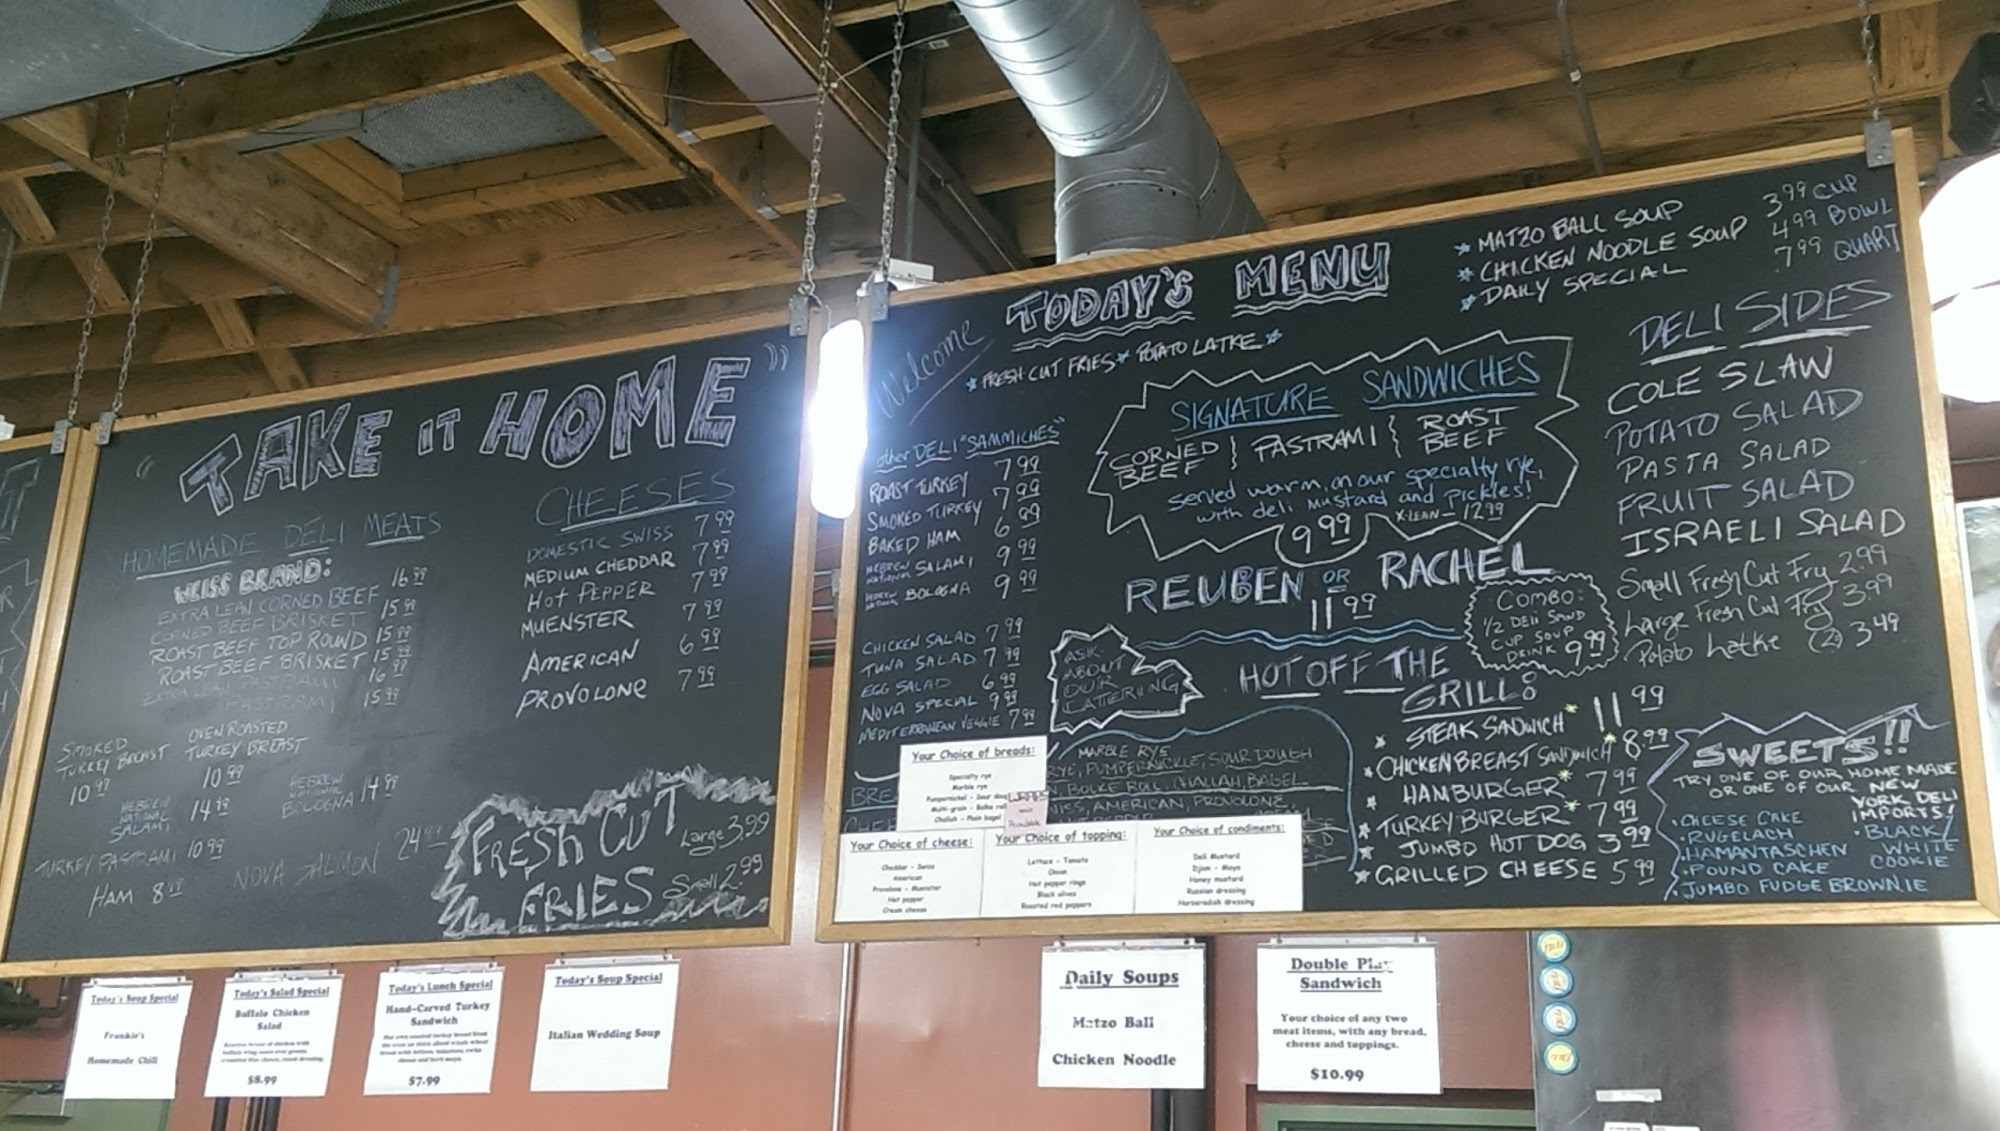 TAKE IT HOME
HOMEMADE DELI MEATS
WEISS BRAND:
EXTRA LEAN CORNED BEEF 16.99
CORNED BEEF BRISKET 15.99
ROAST BEEF TOP ROUND 15.99
ROAST BEEF BRISKET 15.99
EXTRA LEAN PASTRAMI 16.99
PASTRAMI 15.99
SMOKED
TURKEY BREAST
10.99
OVEN ROASTED
TURKEY BREAST
10.99
HEBREW
NATIONAL
SALAMI 14.99
HEBREW
NATIONAL
BOLOGNA 14.99
TURKEY PASTRAMI 10.99
HAM 8.99
NOVA SALMON 24.99
CHEESES
DOMESTIC SWISS 7.99
MEDIUM CHEDDAR 7.99
HOT PEPPER 7.99
MUENSTER 7.99
AMERICAN 6.99
PROVOLONE 7.99
FRESH CUT
FRIES
Large 3.99
Small 2.99
Welcome
TODAY'S MENU
* FRESH CUT FRIES * POTATO LATKE *
* MATZO BALL SOUP
* CHICKEN NOODLE SOUP
* DAILY SPECIAL
3.99 CUP
4.99 BOWL
7.99 QUART
other DELI "SAMMICHES"
ROAST TURKEY 7.99
SMOKED TURKEY 7.99
BAKED HAM 6.99
HEBREW NATIONAL SALAMI 9.99
HEBREW NATIONAL BOLOGNA 9.99
CHICKEN SALAD 7.99
TUNA SALAD 7.99
EGG SALAD 6.99
NOVA SPECIAL 9.99
MEDITERRANEAN VEGGIE 7.99
SIGNATURE SANDWICHES
CORNED BEEF } PASTRAMI { ROAST BEEF
served warm, on our specialty rye,
with deli mustard and pickles!
9.99
X-LEAN - 12.99
REUBEN OR RACHEL
11.99
ASK
ABOUT
OUR
CATTERING
COMBO:
1/2 DELI SAND
CUP SOUP
DRINK 9.99
HOT OFF THE
GRILL:
* STEAK SANDWICH* 11.99
* CHICKEN BREAST SANDWICH* 8.99
* HAMBURGER* 7.99
* TURKEY BURGER* 7.99
* JUMBO HOT DOG 3.99
* GRILLED CHEESE 5.99
DELI SIDES
COLE SLAW
POTATO SALAD
PASTA SALAD
FRUIT SALAD
ISRAELI SALAD
Small Fresh Cut Fry 2.99
Large Fresh Cut Fry 3.99
Potato Latke (2) 3.49
SWEETS!!
TRY ONE OF OUR HOME MADE
OR ONE OF OUR NEW
YORK DELI
IMPORTS!
• CHEESE CAKE
• RUGELACH
• HAMANTASCHEN
• POUND CAKE
• JUMBO FUDGE BROWNIE
• BLACK/
WHITE
COOKIE
MARBLE RYE
RYE, PUMPERNICKLE, SOUR DOUGH
BOLKE ROLL, CHALLAH, BAGEL
SWISS, AMERICAN, PROVOLONE,
Your Choice of breads:
Specialty rye
Marble rye
Pumpernickel - Sour dou
Multi-grain - Bolke rol
Challah - Plain bagel
WRAPS
now
Available
Your Choice of cheese:
Cheddar - Swiss
American
Provolone - Muenster
Hot pepper
Cream cheese
Your Choice of topping:
Lettuce - Tomato
Onion
Hot pepper rings
Black olives
Roasted red peppers
Your Choice of condiments:
Deli Mustard
Dijon - Mayo
Honey mustard
Russian dressing
Horseradish dressing
Today's Soup Special
Frankie's
Homemade Chili
Today's Salad Special
Buffalo Chicken
Salad
$8.99
Today's Lunch Special
Hand-Carved Turkey
Sandwich
$7.99
Today's Soup Special
Italian Wedding Soup
Daily Soups
Matzo Ball
Chicken Noodle
Double Play
Sandwich
Your choice of any two
meat items, with any bread,
cheese and toppings.
$10.99